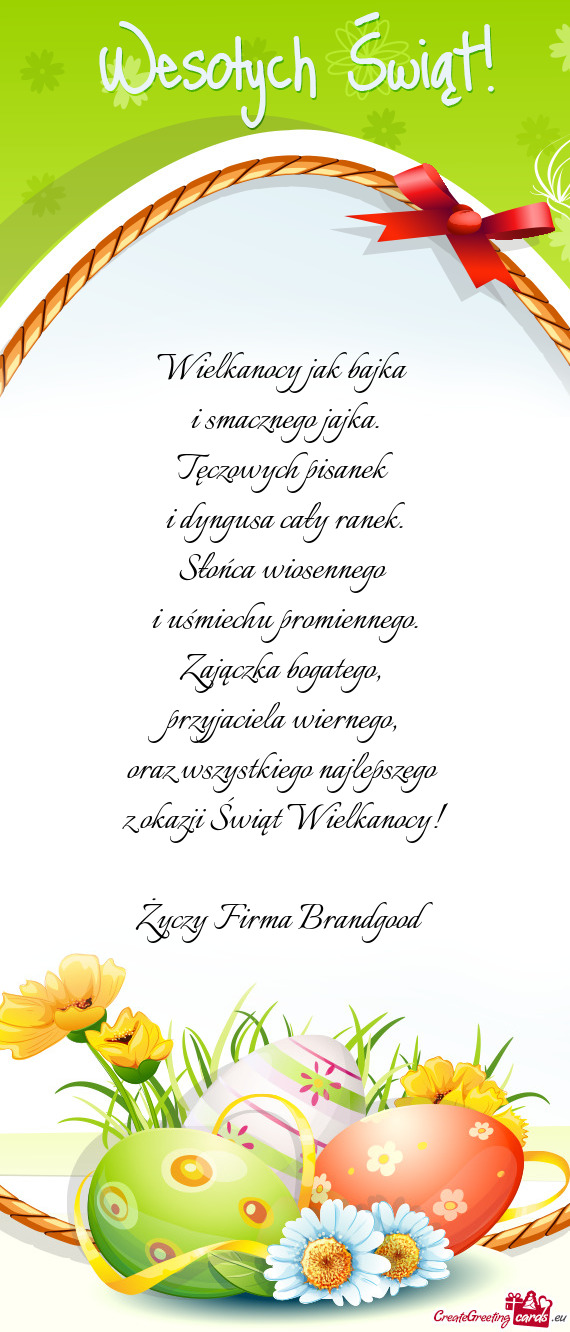 Wesołych Świąt!
Wielkanocy jak bajka
i smacznego jajka.
Tęczowych pisanek
i dyngusa cały ranek.
Słońca wiosennego
i uśmiechu promiennego.
Zajączka bogatego,
przyjaciela wiernego,
oraz wszystkiego najlepszego
z okazji Świąt Wielkanocy!
Życzy Firma Brandgood
CreateGreeting cards .eu